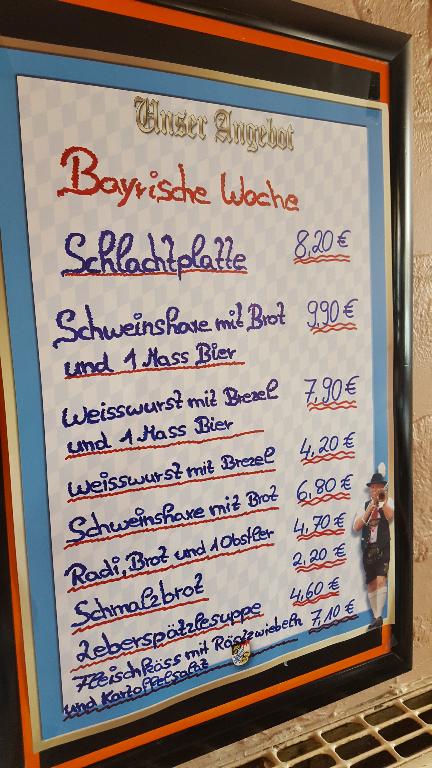 Unser Angebot
Bayrische Woche
Schlachtplatte 8,20 €
Schweinshaxe mit Brot 9,90 €
und 1 Mass Bier
Weisswurst mit Brezel 7,90 €
und 1 Mass Bier
Weisswurst mit Brezel 4,20 €
Schweinshaxe mit Brot 6,80 €
Radi, Brot und 1 Obstler 4,70 €
Schmalzbrot 2,20 €
Leberspätzlesuppe 4,60 €
Fleischkäss mit Röstzwiebeln 7,10 €
und Kartoffelsalat